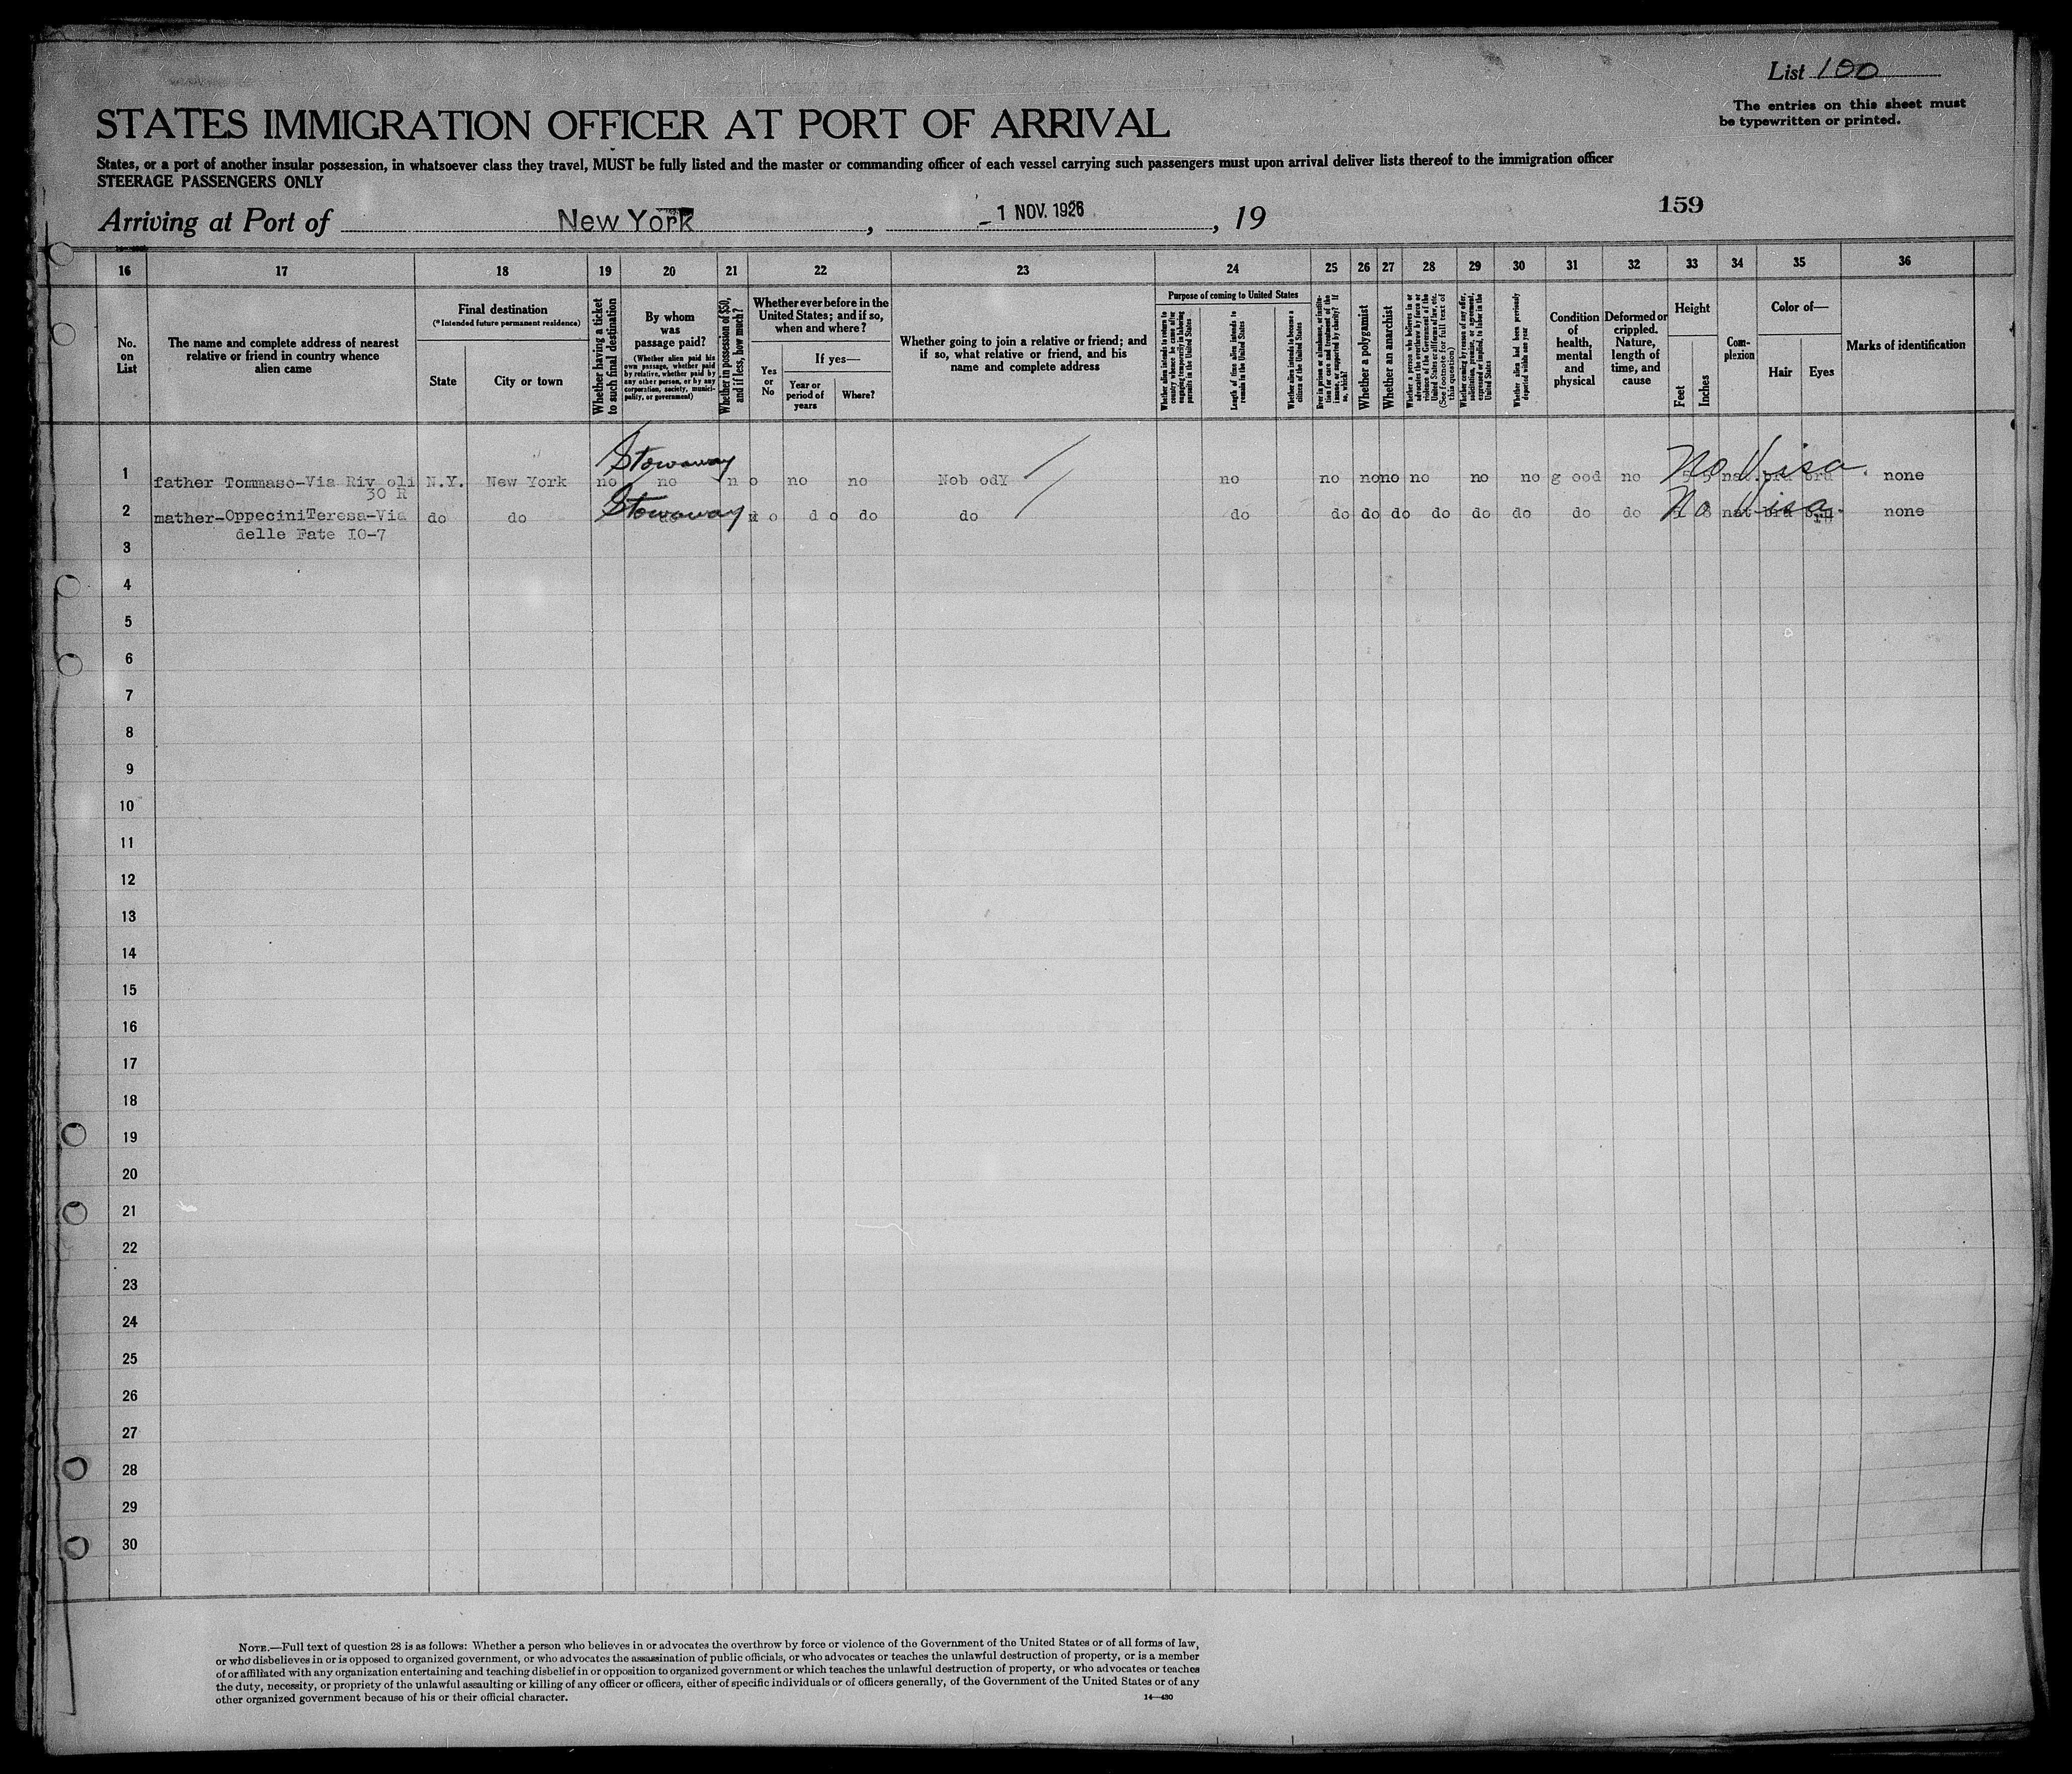 List 100
The entries on this sheet must
be typewritten or printed.
STATES IMMIGRATION OFFICER AT PORT OF ARRIVAL
States, or a port of another insular possession, in whatsoever class they travel, MUST be fully listed and the master or commanding officer of each vessel carrying such passengers must upon arrival deliver lists thereof to the immigration officer
STEERAGE PASSENGERS ONLY
159
Arriving at Port of New York, 1 NOV. 1926, 19
16 17 18 19 20 21 22 23 24 25 26 27 28 29 30 31 32 33 34 35 36
No.
on
List
The name and complete address of nearest
relative or friend in country whence
alien came
Final destination
(*Intended future permanent residence)
State
City or town
Whether having a ticket
to such final destination
By whom
was
passage paid?
(Whether alien paid his
own passage, whether paid
by relative, whether paid by
any other person, or by any
corporation, society, munici-
pality, or government)
Whether in possession of $50,
and if less, how much?
Whether ever before in the
United States; and if so,
when and where?
Yes
or
No
If yes—
Year or
period of
years
Where?
Whether going to join a relative or friend; and
if so, what relative or friend, and his
name and complete address
Purpose of coming to United States
Whether alien intends to return to
country whence he came after
engaging temporarily in laboring
pursuits in the United States
Length of time alien intends to
remain in the United States
Whether alien intends to become a
citizen of the United States
Ever in prison or almshouse, or institu-
tion for care and treatment of the
insane, or supported by charity? If
so, which?
Whether a polygamist
Whether an anarchist
Whether a person who believes in or
advocates the overthrow by force or
violence of the Government of the
United States or all forms of law, etc.
(See footnote for full text of
this question)
Whether coming by reason of any offer,
solicitation, promise, or agreement,
expressed or implied, to labor in the
United States
Whether alien had been previously
deported within one year
Condition
of
health,
mental
and
physical
Deformed or
crippled.
Nature,
length of
time, and
cause
Height
Feet
Inches
Com-
plexion
Color of—
Hair
Eyes
Marks of identification
Stowaway No Visa.
1 father Tommaso-Via Riv oli N.Y. New York no no n o no no Nob odY no no no no no no no g ood no 5 5 nat. bru bru none
30 R
Stowaway No Visa.
2 mather-OppeciniTeresa-Via do do do d o d o do do do do do do do do do do do nat bru bru none
delle Fate IO-7
3
4
5
6
7
8
9
10
11
12
13
14
15
16
17
18
19
20
21
22
23
24
25
26
27
28
29
30
NOTE.—Full text of question 28 is as follows: Whether a person who believes in or advocates the overthrow by force or violence of the Government of the United States or of all forms of law,
or who disbelieves in or is opposed to organized government, or who advocates the assassination of public officials, or who advocates or teaches the unlawful destruction of property, or is a member
of or affiliated with any organization entertaining and teaching disbelief in or opposition to organized government or which teaches the unlawful destruction of property, or who advocates or teaches
the duty, necessity, or propriety of the unlawful assaulting or killing of any officer or officers, either of specific individuals or of officers generally, of the Government of the United States or of any
other organized government because of his or their official character.
14—430